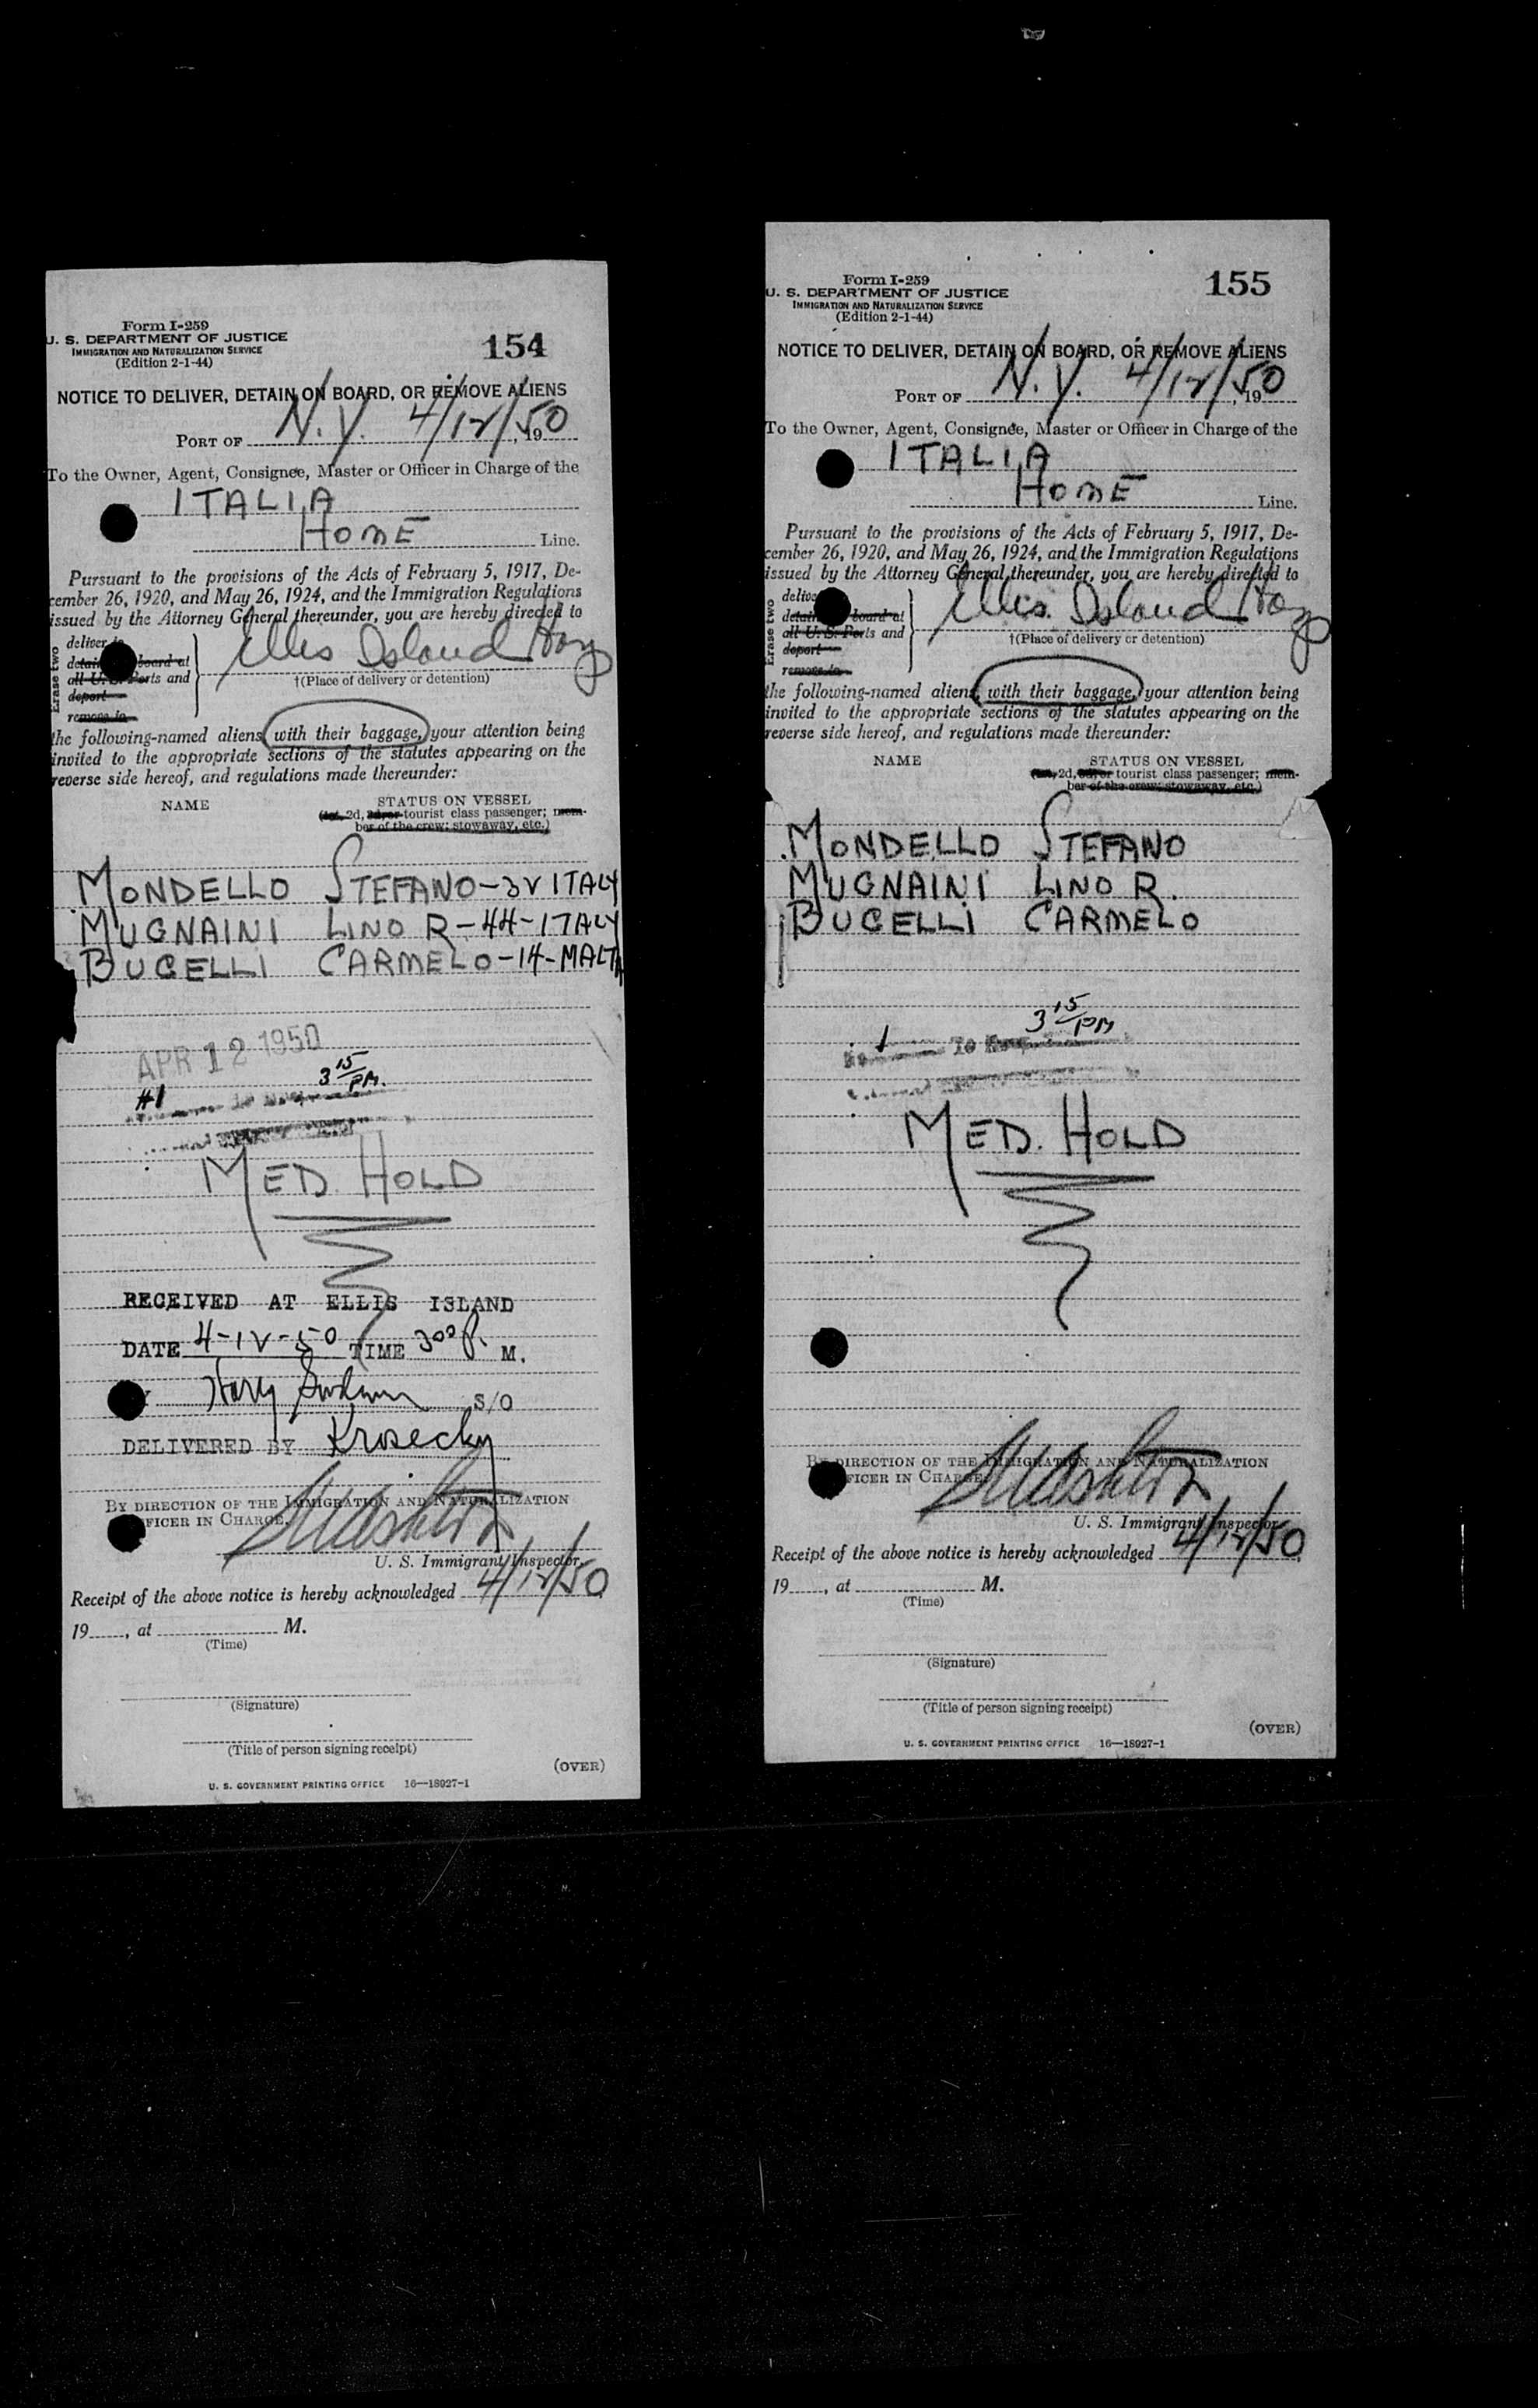 Form I-259
U. S. DEPARTMENT OF JUSTICE
IMMIGRATION AND NATURALIZATION SERVICE
(Edition 2-1-44)
154
NOTICE TO DELIVER, DETAIN ON BOARD, OR REMOVE ALIENS
PORT OF N. Y. 4/12/50, 19
To the Owner, Agent, Consignee, Master or Officer in Charge of the
ITALIA
HOME Line.
Pursuant to the provisions of the Acts of February 5, 1917, De-
cember 26, 1920, and May 26, 1924, and the Immigration Regulations
issued by the Attorney General thereunder, you are hereby directed to
Erase two
deliver to
detain board at
all U. S. Ports and
deport
remove to
Ellis Island Hosp
†(Place of delivery or detention)
the following-named aliens, with their baggage, your attention being
invited to the appropriate sections of the statutes appearing on the
reverse side hereof, and regulations made thereunder:
NAME STATUS ON VESSEL
2d, tourist class passenger; mem-
ber of the crew; stowaway, etc.)
MONDELLO STEFANO-32 ITALY
MUGNAINI LINO R-44-ITALY
BUGELLI CARMELO-14-MALTA
APR 12 1950
#1 3 15/PM.
MED. HOLD
RECEIVED AT ELLIS ISLAND
DATE 4-12-50 TIME 300 P. M.
Harry S/O
DELIVERED BY Krosecky
BY DIRECTION OF THE IMMIGRATION AND NATURALIZATION
OFFICER IN CHARGE.
U. S. Immigrant Inspector.
Receipt of the above notice is hereby acknowledged 4/12/50
19, at M.
(Time)
(Signature)
(Title of person signing receipt)
(OVER)
U. S. GOVERNMENT PRINTING OFFICE 16—18927-1
Form I-259
U. S. DEPARTMENT OF JUSTICE
IMMIGRATION AND NATURALIZATION SERVICE
(Edition 2-1-44)
155
NOTICE TO DELIVER, DETAIN ON BOARD, OR REMOVE ALIENS
PORT OF N. Y. 4/12/50, 19
To the Owner, Agent, Consignee, Master or Officer in Charge of the
ITALIA
HOME Line.
Pursuant to the provisions of the Acts of February 5, 1917, De-
cember 26, 1920, and May 26, 1924, and the Immigration Regulations
issued by the Attorney General thereunder, you are hereby directed to
Erase two
deliver
detain board at
all U. S. Ports and
deport
remove to
Ellis Island Hosp
†(Place of delivery or detention)
the following-named aliens, with their baggage, your attention being
invited to the appropriate sections of the statutes appearing on the
reverse side hereof, and regulations made thereunder:
NAME STATUS ON VESSEL
2d, tourist class passenger; mem-
ber of the crew; stowaway, etc.)
MONDELLO STEFANO
MUGNAINI LINO R.
BUGELLI CARMELO
1 3 15/PM
MED. HOLD
BY DIRECTION OF THE IMMIGRATION AND NATURALIZATION
OFFICER IN CHARGE.
U. S. Immigrant Inspector.
Receipt of the above notice is hereby acknowledged 4/12/50
19, at M.
(Time)
(Signature)
(Title of person signing receipt)
(OVER)
U. S. GOVERNMENT PRINTING OFFICE 16—18927-1